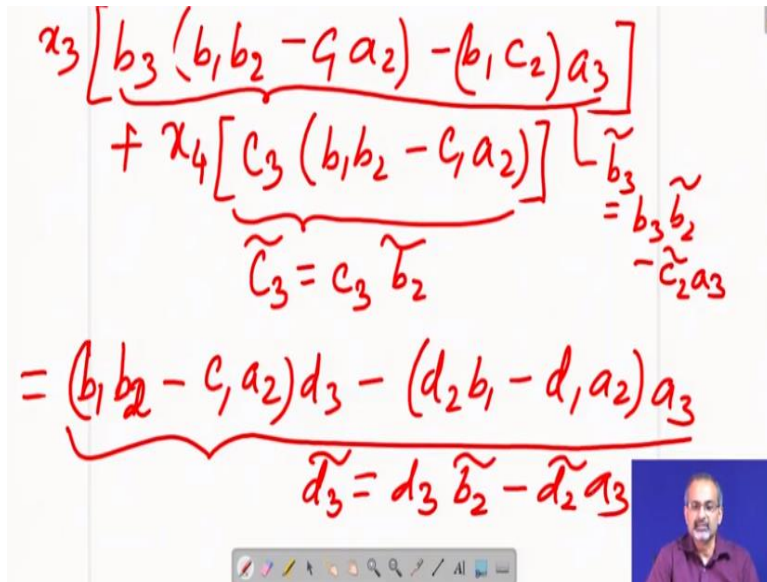 x₃[b₃(b₁b₂ - c₁a₂) - (b₁c₂)a₃]
+ x₄[c₃(b₁b₂ - c₁a₂)]
b̃₃
= b₃b̃₂
- c̃₂a₃
c̃₃ = c₃ b̃₂
= (b₁b₂ - c₁a₂)d₃ - (d₂b₁ - d₁a₂)a₃
d̃₃ = d₃ b̃₂ - d̃₂a₃
AI